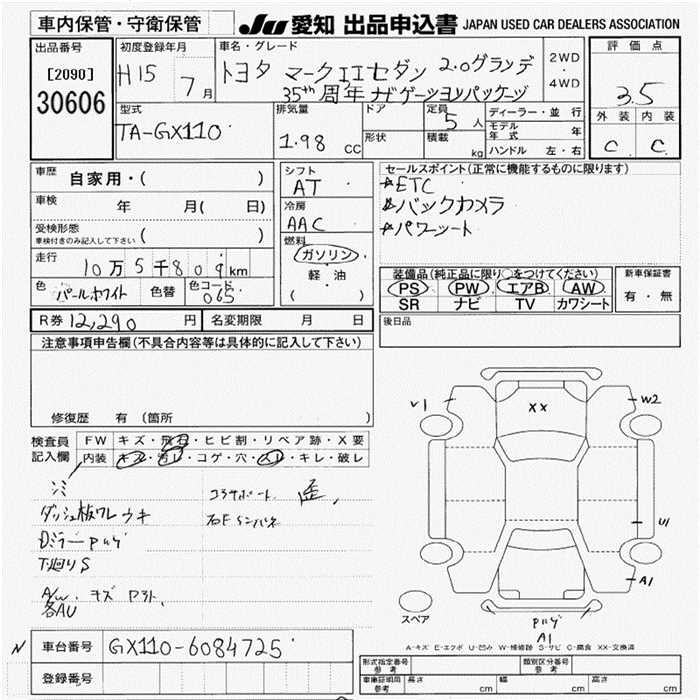 車内保管・守衛保管
JU 愛知 出品申込書 JAPAN USED CAR DEALERS ASSOCIATION
出品番号
[2090]
30606
初度登録年月
H15 7月
車名・グレード
トヨタ マークIIセダン 2.0グランデ
35th 周年 ナビゲーションパッケージ
2WD
・
4WD
評価点
3.5
外装 内装
C C
型式
TA-GX110
排気量
1.98 CC
ドア
形状
定員
5人
積載
kg
ディーラー・並行
モデル年式 年
ハンドル 左・右
車歴
自家用・( )
車検
年 月( 日)
受検形態
車検付きのみ記入して下さい ( )
走行
10万5千809km
色
パールホワイト
色替
色コード
065
シフト
AT
冷房
AAC
燃料
ガソリン
軽・油
( )
セールスポイント(正常に機能するものに限ります)
☆ETC
☆バックカメラ
☆パワーシート
装備品(純正品に限り○をつけてください)
PS PW エアB AW
SR ナビ TV カワシート
新車保証書
有・無
R券 12,290 円
名変期限 月 日
後日品
注意事項申告欄(不具合内容等は具体的に記入して下さい)
修復歴 有 (箇所 )
検査員
記入欄
FW キズ・飛石・ヒビ割・リペア跡・X要
内装 キズ・汚レ・コゲ・穴・スレ・キレ・破レ
コラサポート 歪
ダッシュ板ワレ ウキ
Dミラー
T廻りS
A/W キズ
各AU
V1
XX
W2
U1
A1
スペア
A1
A-キズ E-エクボ U-凹み W-補修跡 S-サビ C-腐食 XX-交換済
N
車台番号 GX110-6084725
登録番号
形式指定番号
参考
類別区分番号
参考
車庫証明用
参考
長さ cm
幅 cm
高さ cm